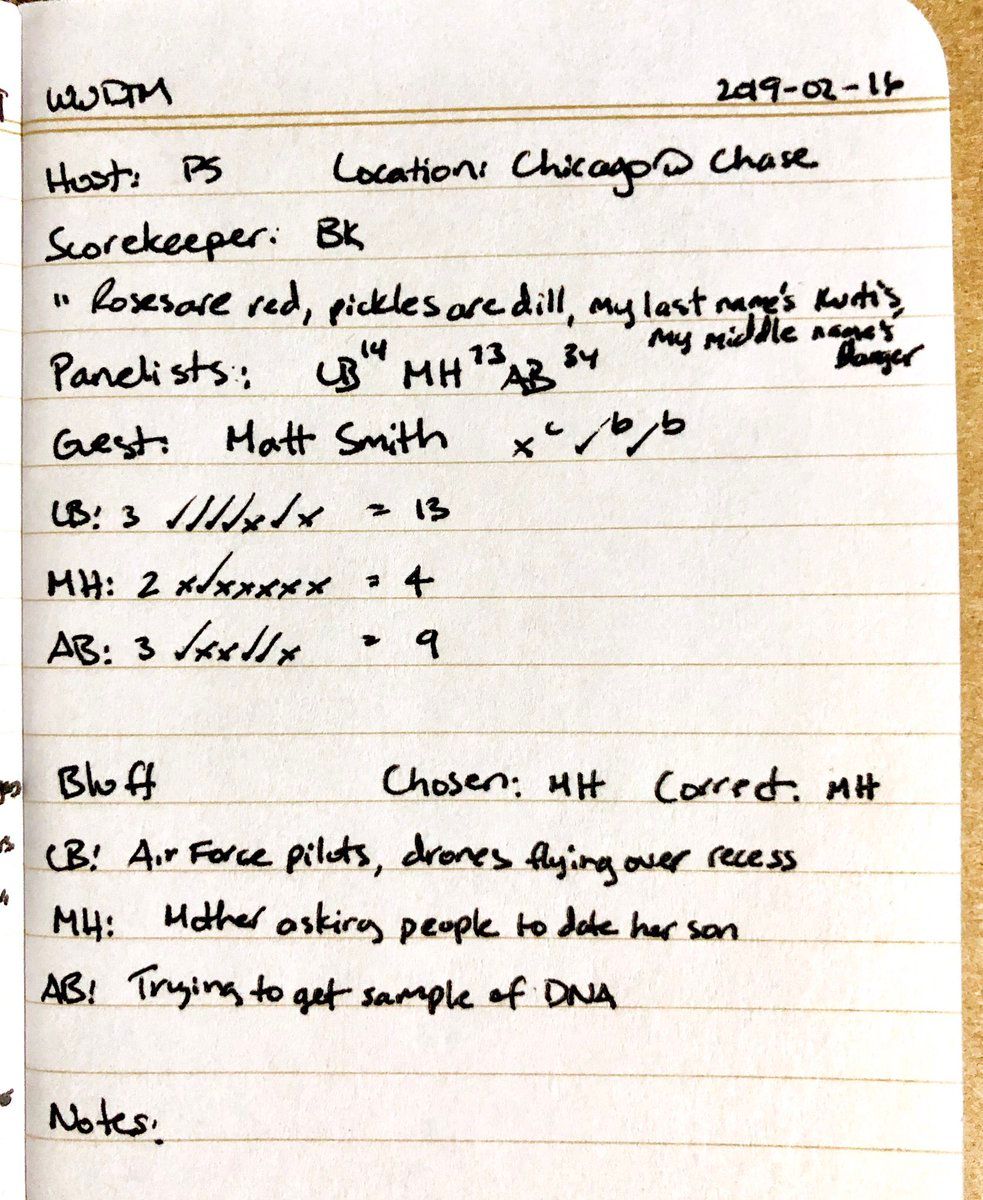 WWDTM 2019-02-16
Host: PS Location: Chicago @ Chase
Scorekeeper: BK
" Roses are red, pickles are dill, my last name's Kurtis,
my middle name's
Danger
Panelists: LB 14 MH 23 AB 34
Guest: Matt Smith x c ✓ b ✓ b
LB: 3 ✓✓✓✓x✓x = 13
MH: 2 x✓xxxxx = 4
AB: 3 ✓xx✓✓x = 9
Bluff Chosen: MH Correct: MH
LB: Air Force pilots, drones flying over recess
MH: Mother asking people to date her son
AB: Trying to get sample of DNA
Notes: